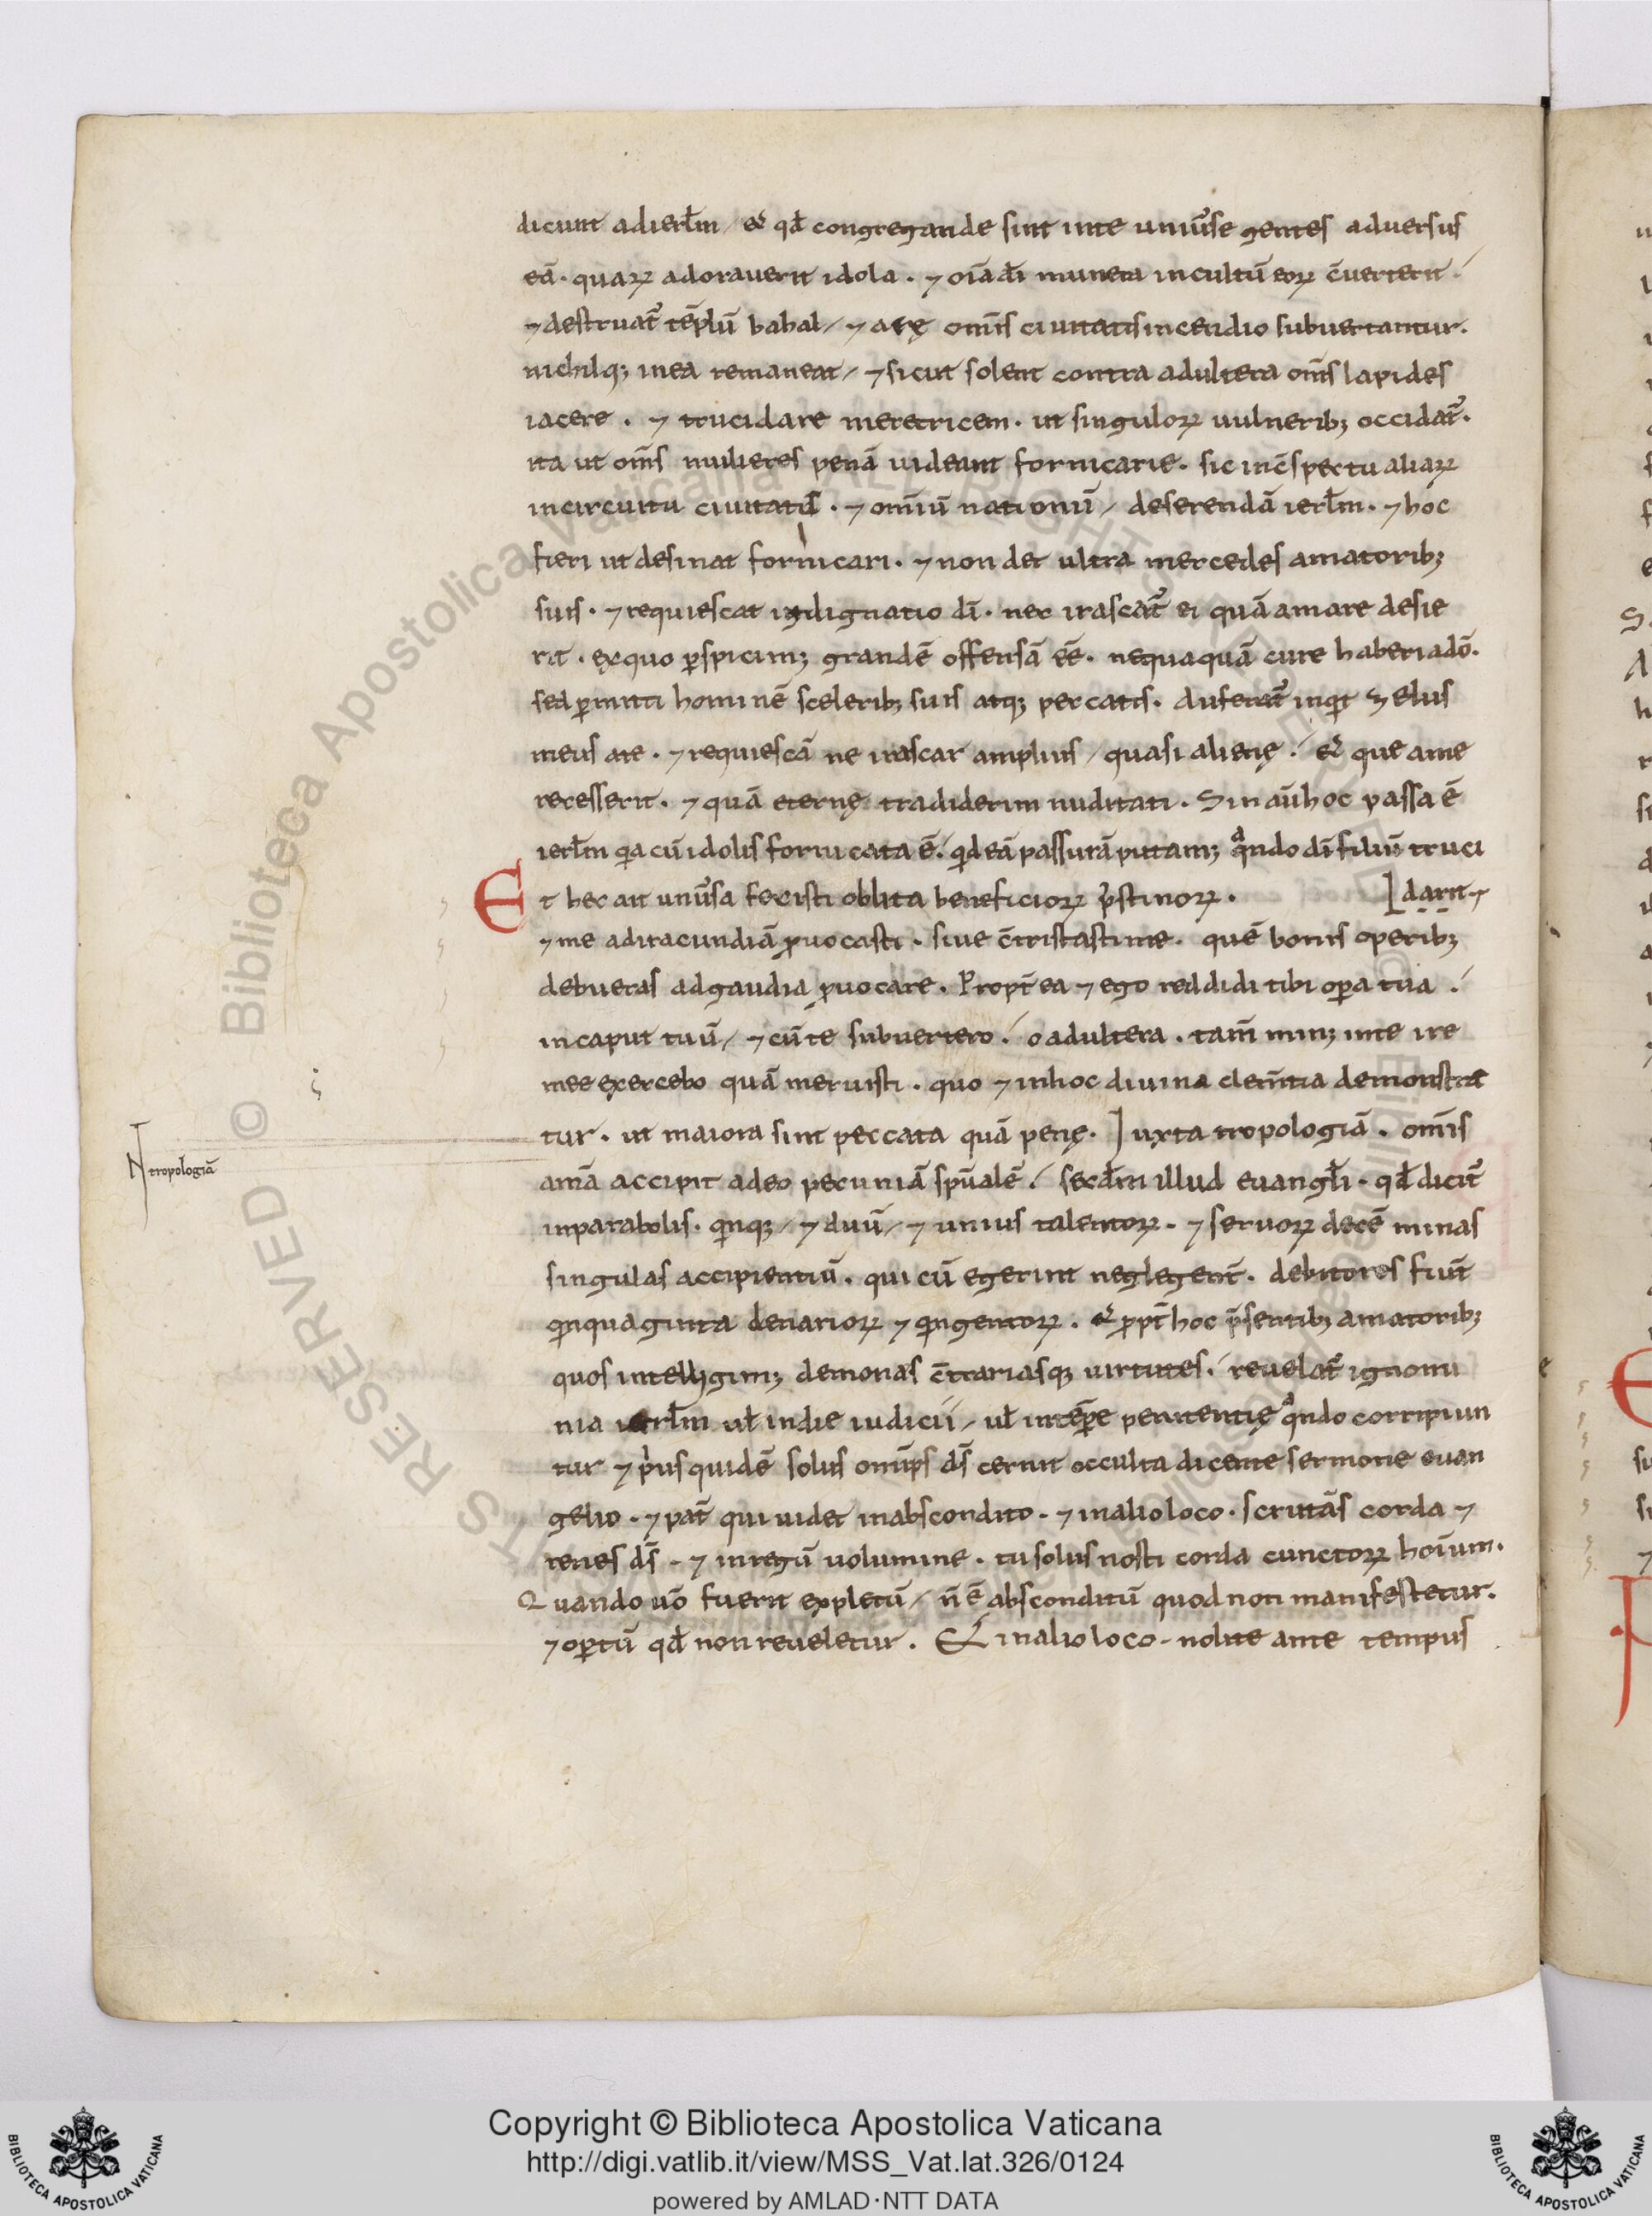 dicunt adierl̄m / & qd̄ congregande sint inte uniuͥse gentes aduersus
eā · quaꝝ adorauerit idola · ⁊ oīa dī munera incultū eoꝝ c̄uerterit ·
⁊ destruat̄ tēplū bahal / ⁊ arę om̄s ciuitatis incendio subuertantur ·
nichilqꝫ inea remaneat / ⁊ sicut solent contra adultera om̄s lapides
iacere · ⁊ trucidare meretricem · ut singuloꝝ uulneribꝫ occidat̄ ·
ita ut om̄s mulieres penā uideant fornicarie · sic inc̄spectu aliaꝝ
incircuitu ciuitatū · ⁊ omīū nationū / deserendā ierl̄m · ⁊ hoc
fieri ut desinat fornicari · ⁊ non det ultra mercedes amatoribꝫ
suis · ⁊ requiescat indignatio dī · nec irascat̄ ei quā amare desie
rit · exquo ꝑspicimꝫ grandē offensā eē · nequaquā cure haberi adō ·
sed ꝑmitti hominē sceleribꝫ suis atqꝫ peccatis · Auferat̄ inqͥt zelus
meus ate · ⁊ requiescā ne irascar amplius / quasi alienę · & que ame
recesserit · ⁊ quā eternę tradiderim nuditati · Sin aū hoc passa ē
ierl̄m qͥa cū idolis fornicata ē · qͥd eā passurā putamꝫ qͣndo dī filiū truci
Et hec ait uniuͥsa fecisti oblita beneficioꝝ p̄stinoꝝ · [darit ⁊
⁊ me adiracundiā ꝓuocasti · siue c̄tristasti me · quē bonis operibꝫ
debueras adgaudia ꝓuocare · Propt̄ ea ⁊ ego reddidi tibi oꝑa tua ·
incaput tuū / ⁊ cū te subuertero · o adultera · tam̄ minꝫ inte ire
mee exercebo quā meruisti · quo ⁊ inhoc diuina clem̄tia demonstra
tur · ut maiora sint peccata quā penę · Iuxta tropologiā · om̄is
N tropologiā
amā accipit adeo pecuniā spūalē · secd̄m illud euangl̄i · qd̄ dicit̄
inparabolis · qͥnqꝫ / ⁊ duū / ⁊ unius talentoꝝ · ⁊ seruoꝝ decē minas
singulas accipientiū · qui cū egerint neglegent̄ · debitores fiūt
qͥnquaginta denarioꝝ ⁊ qͥngentoꝝ · & ꝓpt̄ hoc p̄sentibꝫ amatoribꝫ
quos intelligimꝫ demonas c̄trariasqꝫ uirtutes · reuelat̄ ignomi
nia ierl̄m ul̄ indie iudicii / ul̄ intēꝑe penitentię qͣndo corripiun
tur ⁊ pͥus quidē solus omīps ds̄ cernit occulta dicente sermone euan
gelio · ⁊ pat̄ qui uidet inabscondito · ⁊ inalio loco · scrutās corda ⁊
renes ds̄ · ⁊ inregū uolumine · tu solus nosti corda cunctoꝝ hoīum ·
Quando uō fuerit expletū / n̄ ē absconditū quod non manifestetur ·
⁊ oꝑtū qd̄ non reueletur · Et inalio loco · nolite ante tempus
Copyright © Biblioteca Apostolica Vaticana
http://digi.vatlib.it/view/MSS_Vat.lat.326/0124
powered by AMLAD·NTT DATA